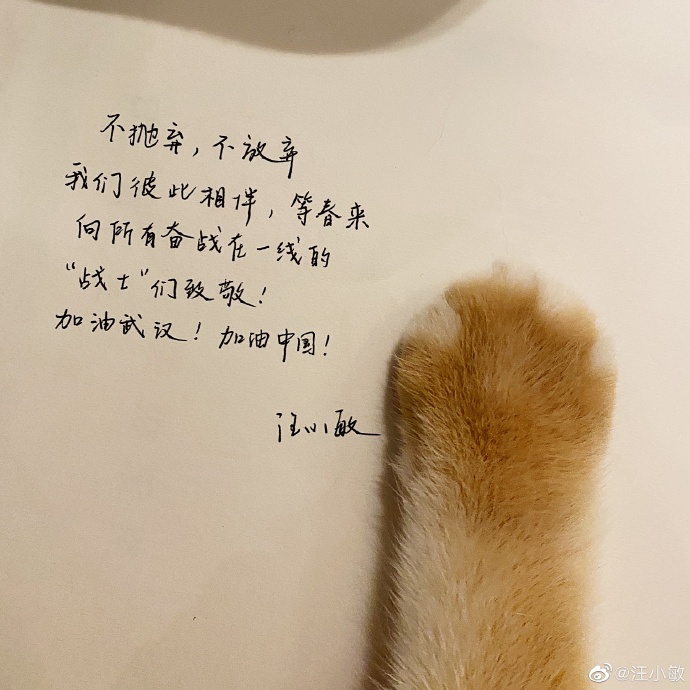 不抛弃，不放弃
我们彼此相伴，等春来
向所有奋战在一线的
“战士”们致敬！
加油武汉！加油中国！
汪小敏
@汪小敏